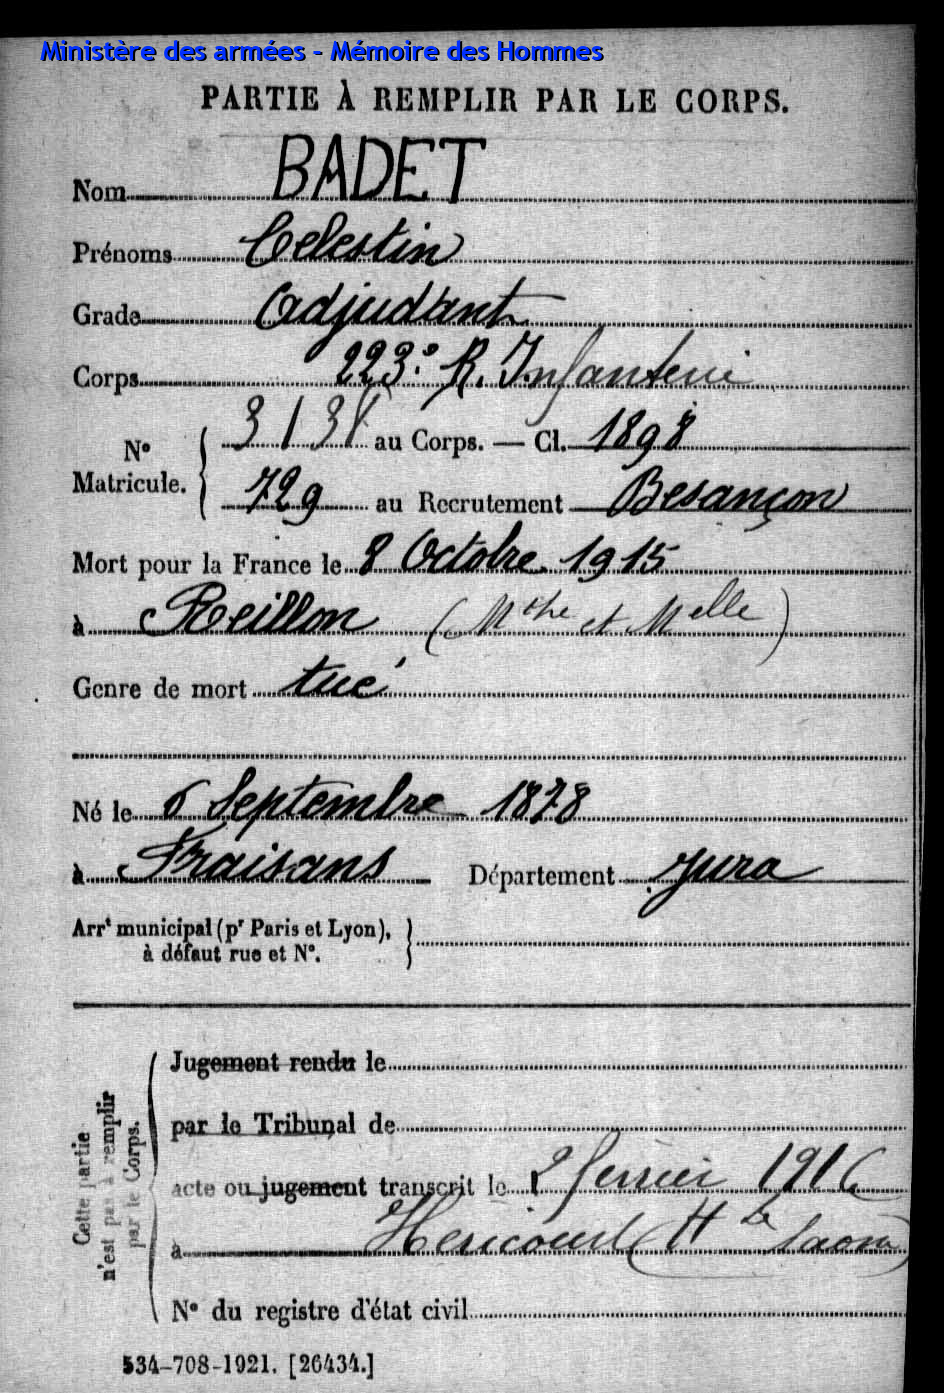 Ministère des armées - Mémoire des Hommes
PARTIE À REMPLIR PAR LE CORPS.
Nom BADET
Prénoms Celestin
Grade Adjudant
Corps 223e R. Infanterie
N° Matricule. { 3138 au Corps. — Cl. 1898
729 au Recrutement Besançon
Mort pour la France le 8 Octobre 1915
à Reillon (Mthe et Melle)
Genre de mort tué
Né le 6 Septembre 1878
à Fraisans Département Jura
Arrt municipal (pr Paris et Lyon),
à défaut rue et N°. }
Cette partie n'est pas à remplir par le Corps.
Jugement rendu le
par le Tribunal de
acte ou jugement transcrit le 2 février 1916
à Hericourt (Hte Saone)
N° du registre d'état civil
534-708-1921. [26434.]